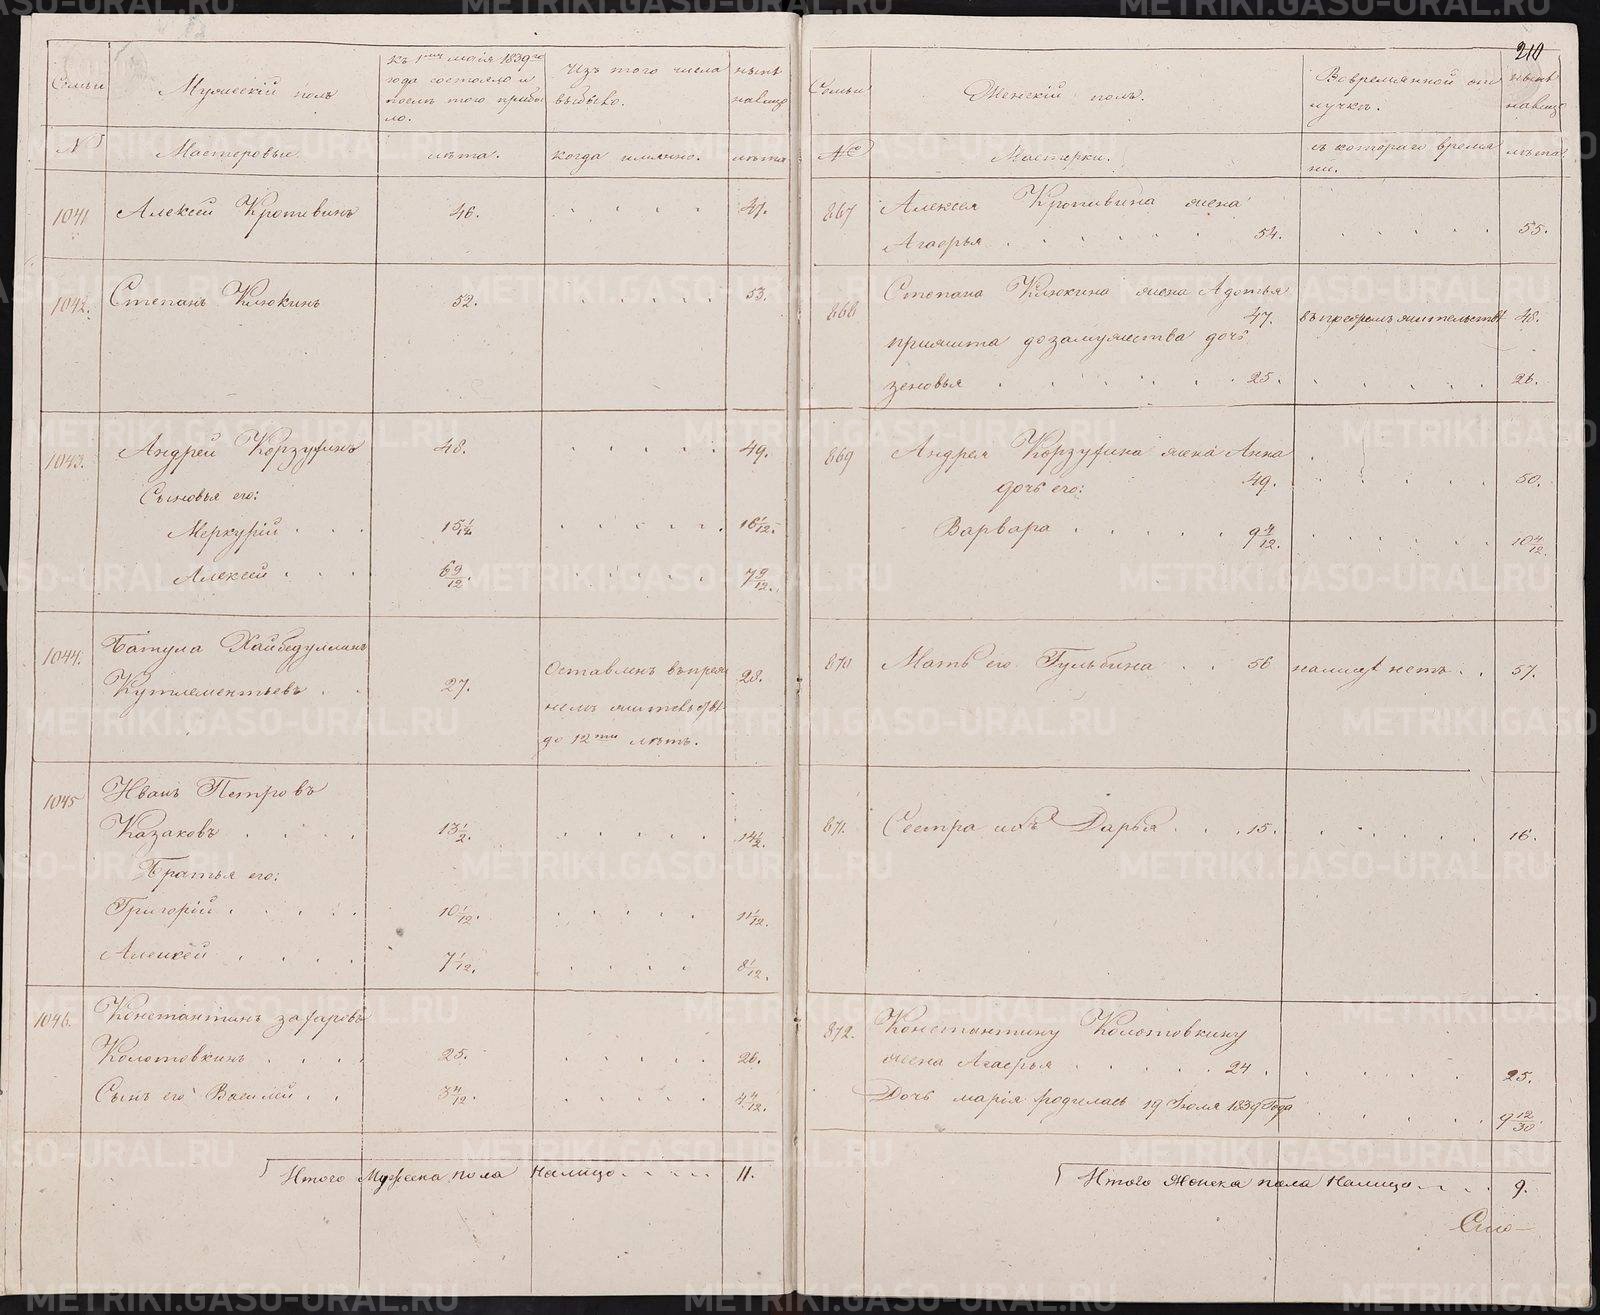 Семьи
Мужескій полъ
Къ 1му маія 1839го
года состояло и
послѣ того прибы
ло.
Изъ того числа
выбыло.
нынѣ
налицо
№
Мастеровые
лѣта.
когда имянно.
лѣта
1041
Алексей Кропивинъ
46.
47.
1042.
Степанъ Клюкинъ
52.
53.
1043.
Андрей Корзуфинъ
48.
49.
Сыновья его:
Меркурій
15 1/12
16 1/12.
Алексей
6 9/12.
7 9/12.
1044.
Батула Хайбедуллинъ
Кутлементьевъ
27.
Оставленъ въ преж
немъ жительствѣ
до 12ти лѣтъ.
28.
1045
Иванъ Петровъ
Казаковъ
13 1/2.
14 1/2.
Братья его:
Григорій
10 1/12.
11 1/12.
Алексей
7 1/12.
8 1/12.
1046.
Константинъ Захаровъ
Колотовкинъ
25.
26.
Сынъ его Василій
3 4/12.
4 4/12.
Итого Мужеска пола налицо
11.
210
Семьи
Женскій полъ.
Вовремянной от
лучкѣ.
нынѣ
налицо
№
Мастерки.
съ котораго время
ни.
лѣта
867
Алексея Кропивина жена
Агафья
54.
55.
868
Степана Клюкина жена Адотья
47.
въ прежнемъ жительствѣ
48.
прижита до замужества дочь
зеновья
25.
26.
869
Андрея Корзуфина жена Анна
49.
50.
дочь его:
Варвара
9 4/12.
10 4/12.
870
Мать его Гульбина
56
налицѣ нетъ
57.
871.
Сестра ихъ Дарья
15.
16.
872.
Константину Колотовкину
жена Агафья
24
25.
Дочь марія родилась 19 Іюля 1839 Года
9 12/30.
Итого Женска пола налицо
9.
METRIKI.GASO-URAL.RU